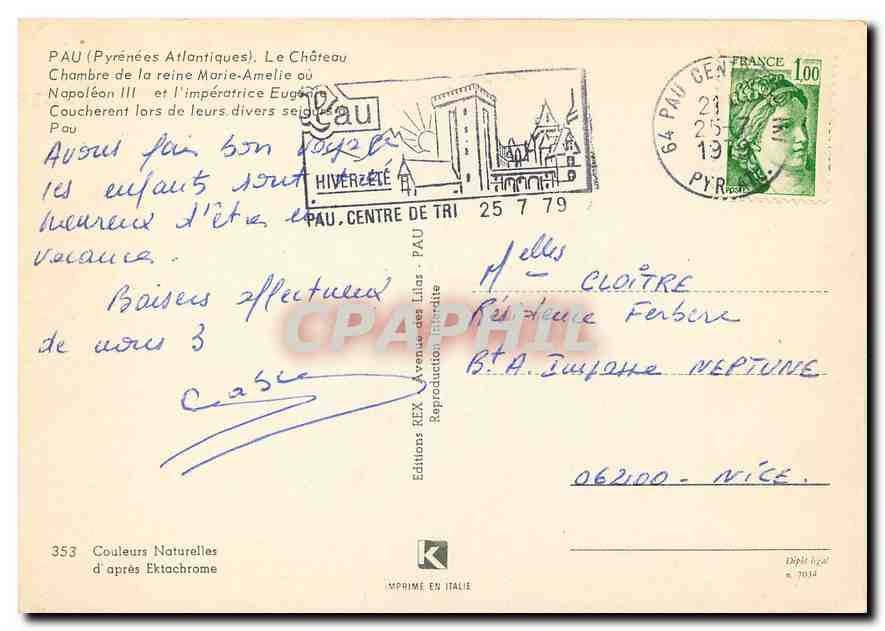 PAU (Pyrénées Atlantiques), Le Château
Chambre de la reine Marie-Amelie où
Napoléon III et l'impératrice Eugénie
Coucherent lors de leurs divers sejours
Pau
Avons fais bon voyage
les enfants sont
heureux d'être en
vacance.
Baisers affectueux
de nous 3
Pau
HIVER-ÉTÉ
PAU, CENTRE DE TRI 25 7 79
64 PAU CEN TRI
21
25-
1979
PYR
FRANCE
1,00
Melles CLOÎTRE
Résidence Ferbere
Bt A. Impasse NEPTUNE
06200 - NICE.
Editions REX - Avenue des Lilas - PAU
Reproduction Interdite
CPAPHIL
353 Couleurs Naturelles
d'après Ektachrome
K
IMPRIMÉ EN ITALIE
Dépôt légal
n. 7034